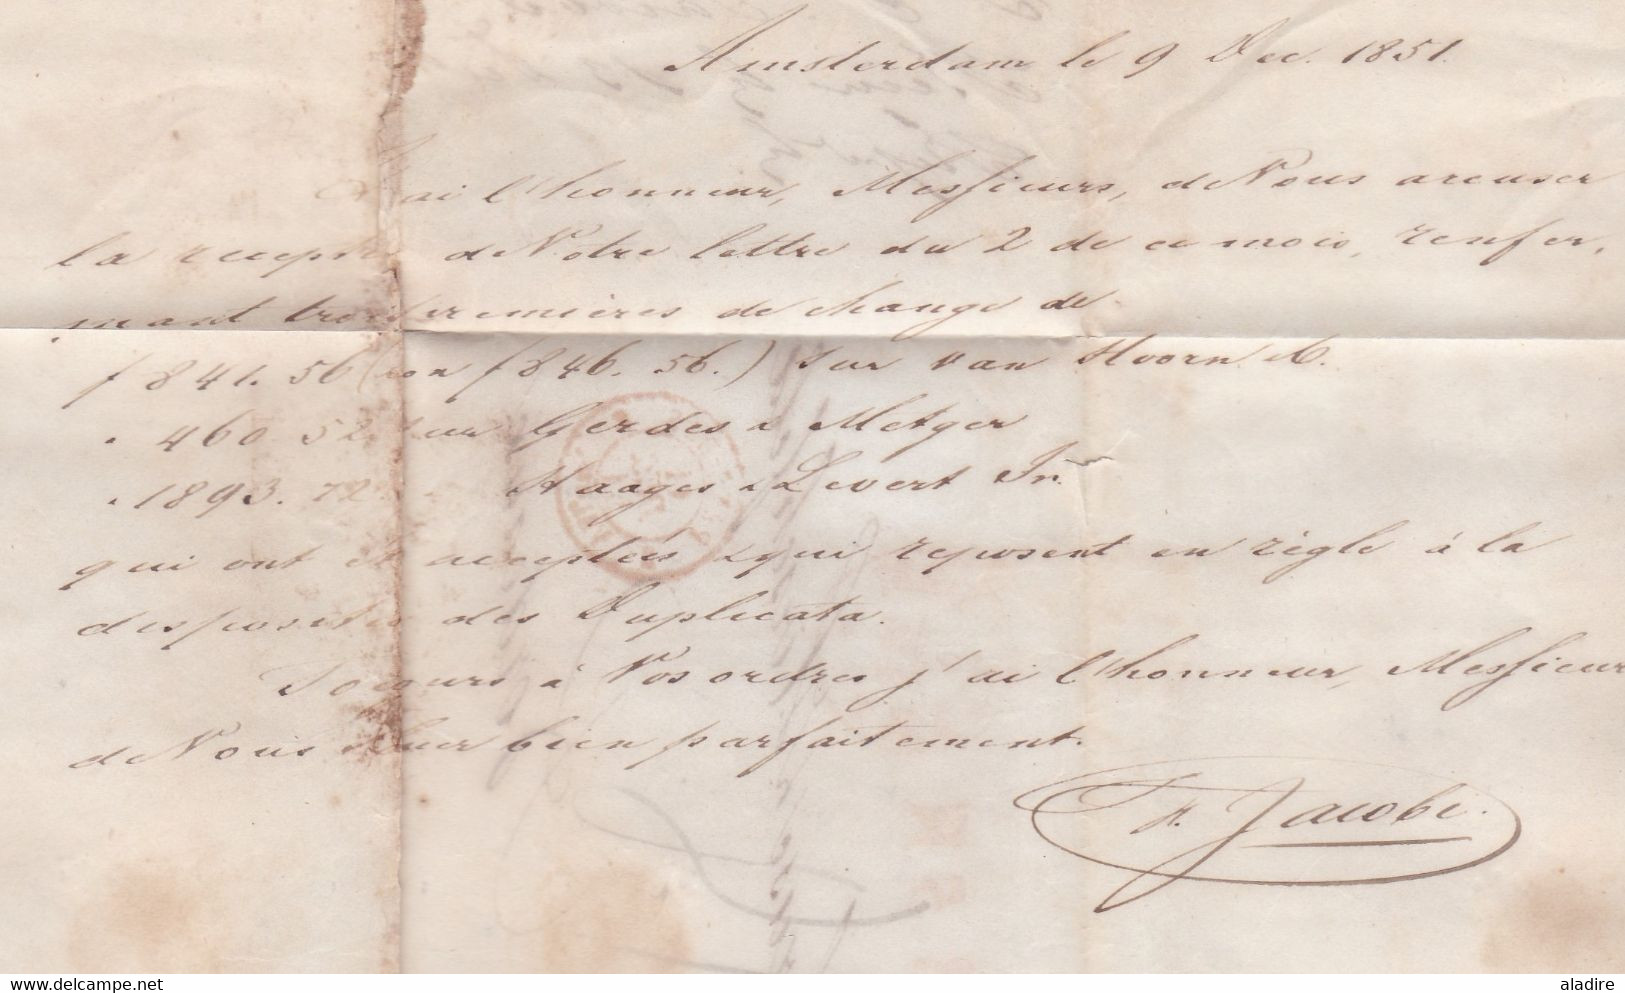 Amsterdam le 9 Dec. 1851.
J'ai l'honneur, Messieurs, de Vous accuser
la recept de Votre lettre du 2 de ce mois, renfer,
mant trois premières de change de
f 841. 56 (non f 846. 56.) sur van Hoorn & C.
" 460 52 sur Gerdes & Metger
" 1893. 72 Haages & Levert Jr.
qui ont été acceptées & qui reposent en règle à la
disposition des Duplicata.
Toujours à Vos ordres j'ai l'honneur, Messieurs
de Vous saluer bien parfaitement.
Fr. Jacobi.
www.delcampe.net
aladire